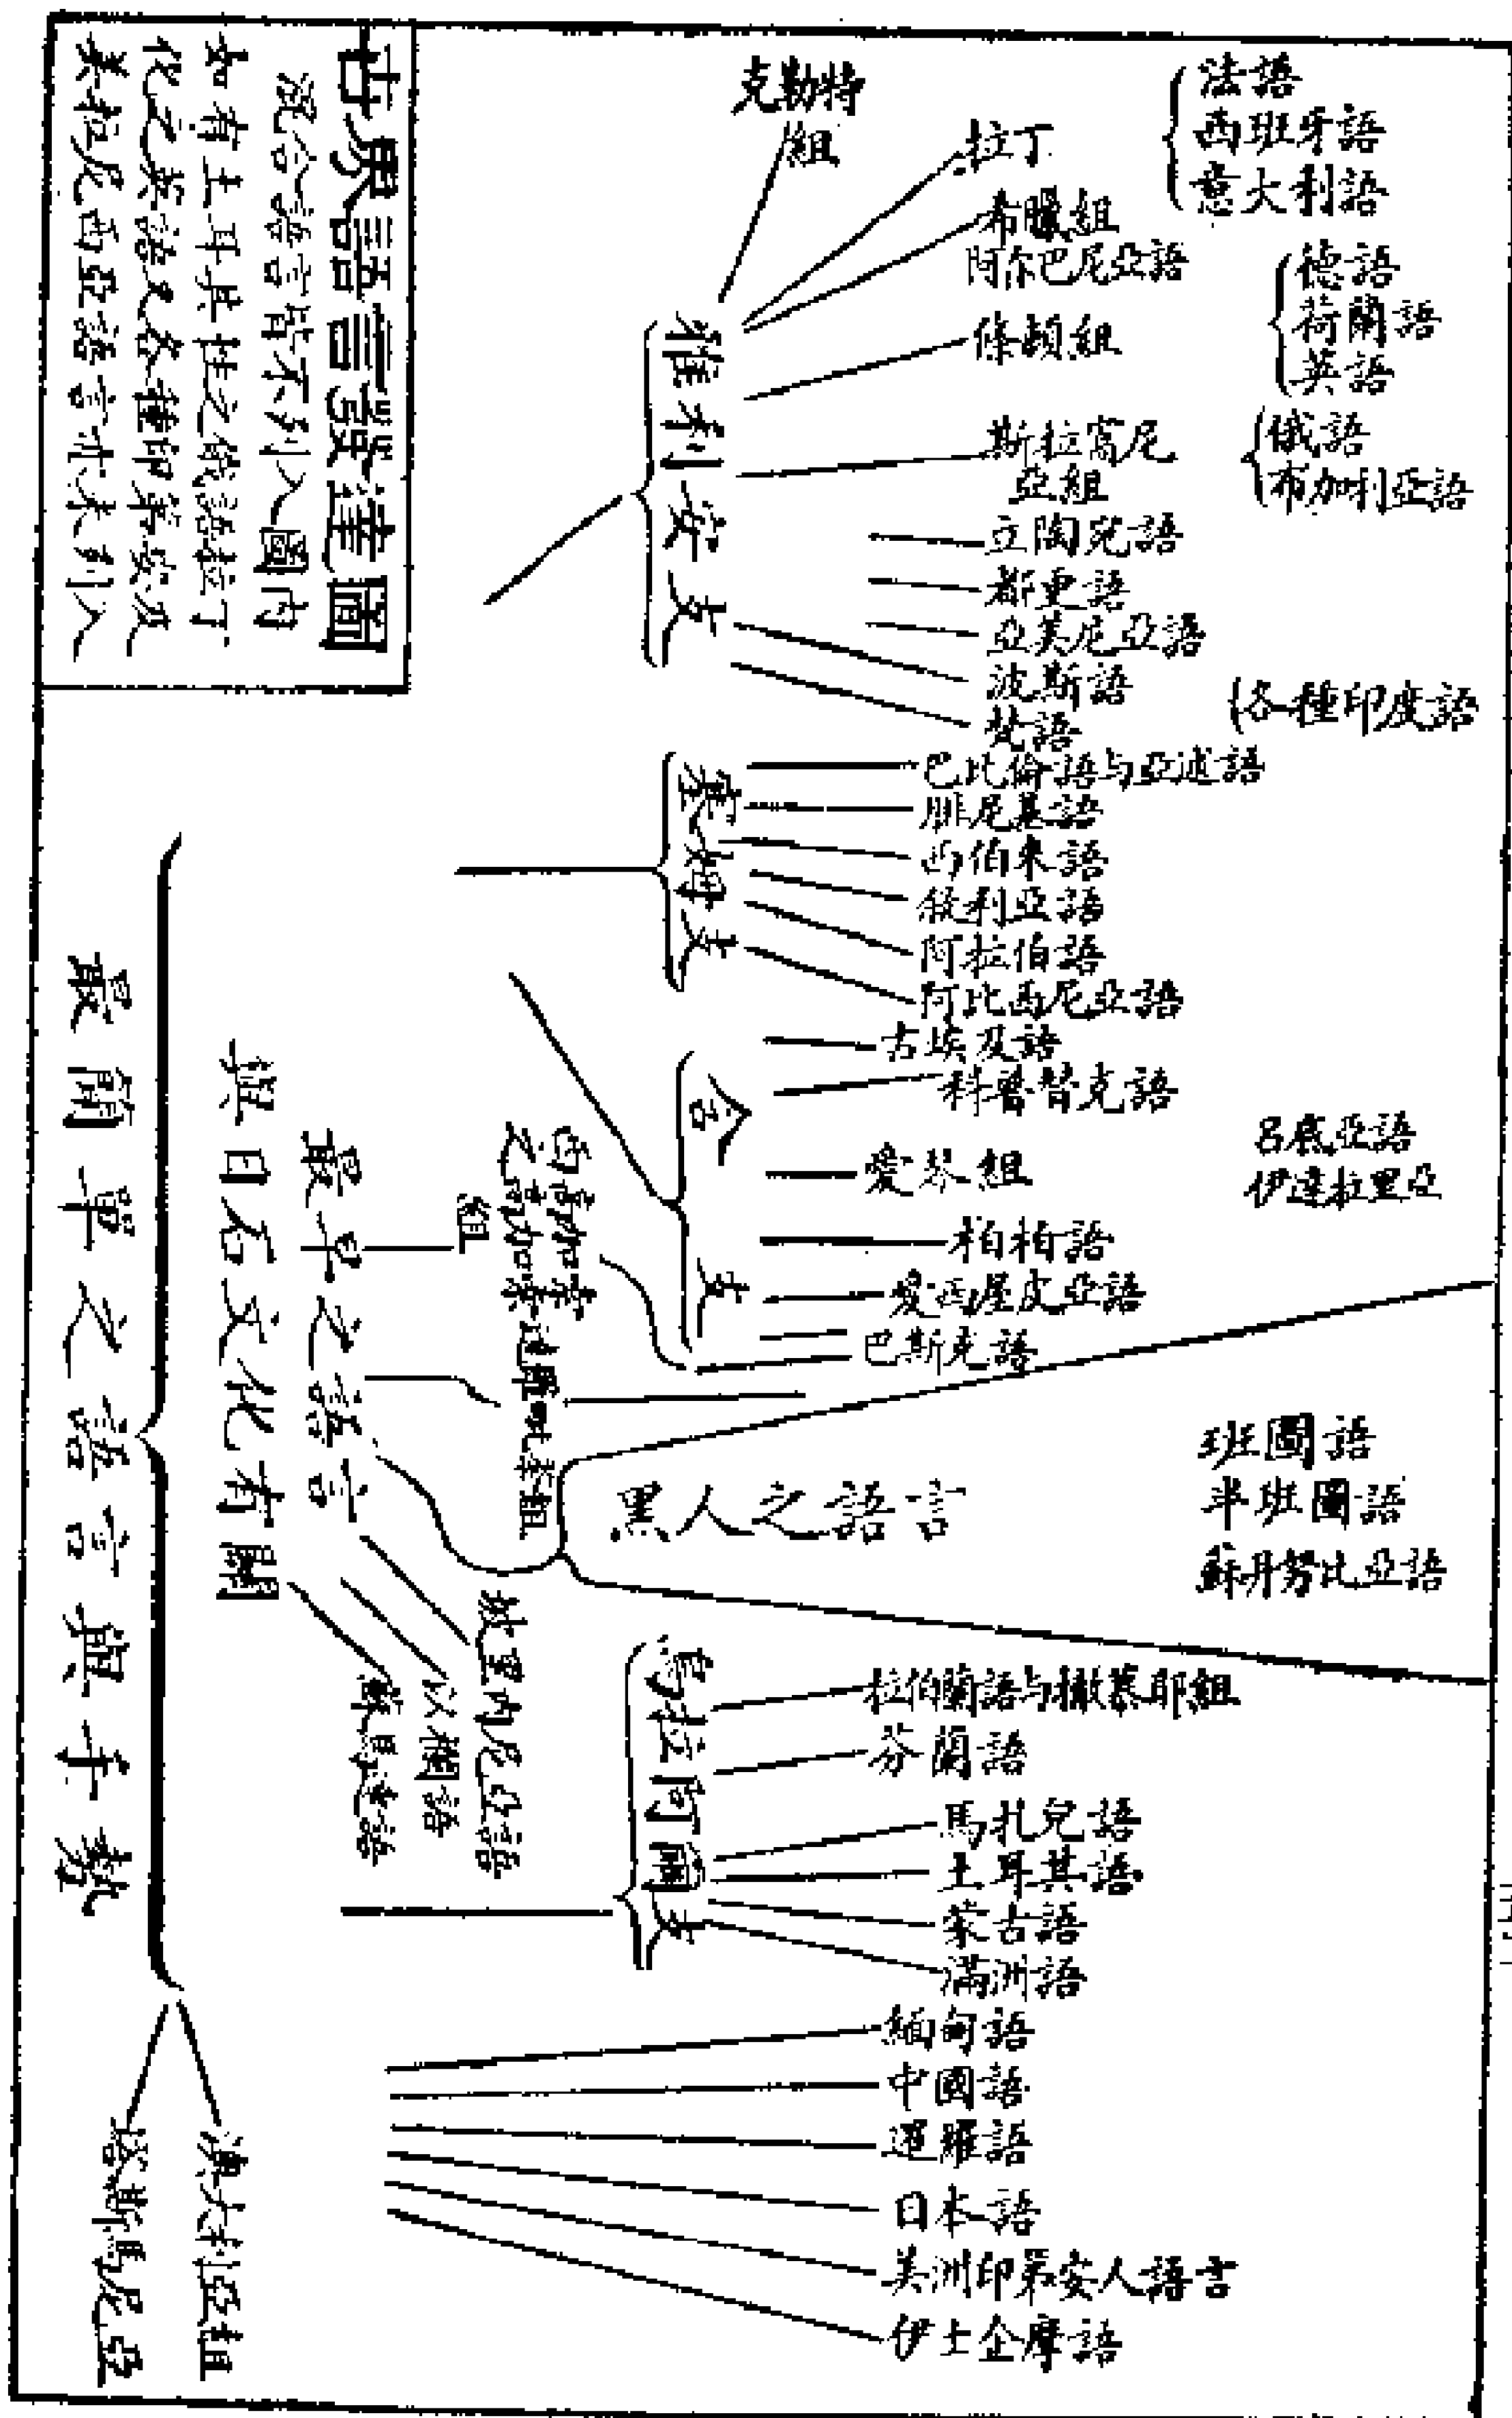 世界語言發達圖
混合語言皆不列入圖內
如有土耳其性之俄語拉丁
化之英語
及各種印第安及
美拉尼西亞語言亦未列入
克勒特
組
拉丁
法語
西班牙語
意大利語
希臘組
阿尔巴尼亞語
條頓組
德語
荷蘭語
英語
斯拉窩尼
亞組
俄語
布加利亞語
立陶宛語
亞美尼亞語
波斯語
梵語
各種印度語
雅利安支
巴比倫語与亞述語
腓尼基語
西伯來語
敘利亞語
阿拉伯語
阿比西尼亞語
塞姆支
古埃及語
科普替克語
愛琴組
呂底亞語
伊達拉里亞
柏柏語
愛西屋皮亞語
巴斯克語
含支
南高加索
之高加索
組
達羅毗荼組
最早之語言
與日石文化有關
最簡單之語言與手勢
黑人之語言
班圖語
半班圖語
蘇丹努比亞語
以欄語
蘇馬連語
烏拉阿爾支
拉伯蘭語与撒慕耶組
芬蘭語
馬扎兒語
土耳其語
蒙古語
滿洲語
緬甸語
中國語
暹羅語
日本語
美洲印第安人語言
伊士企摩語
澳大利亞組
塔斯馬尼亞